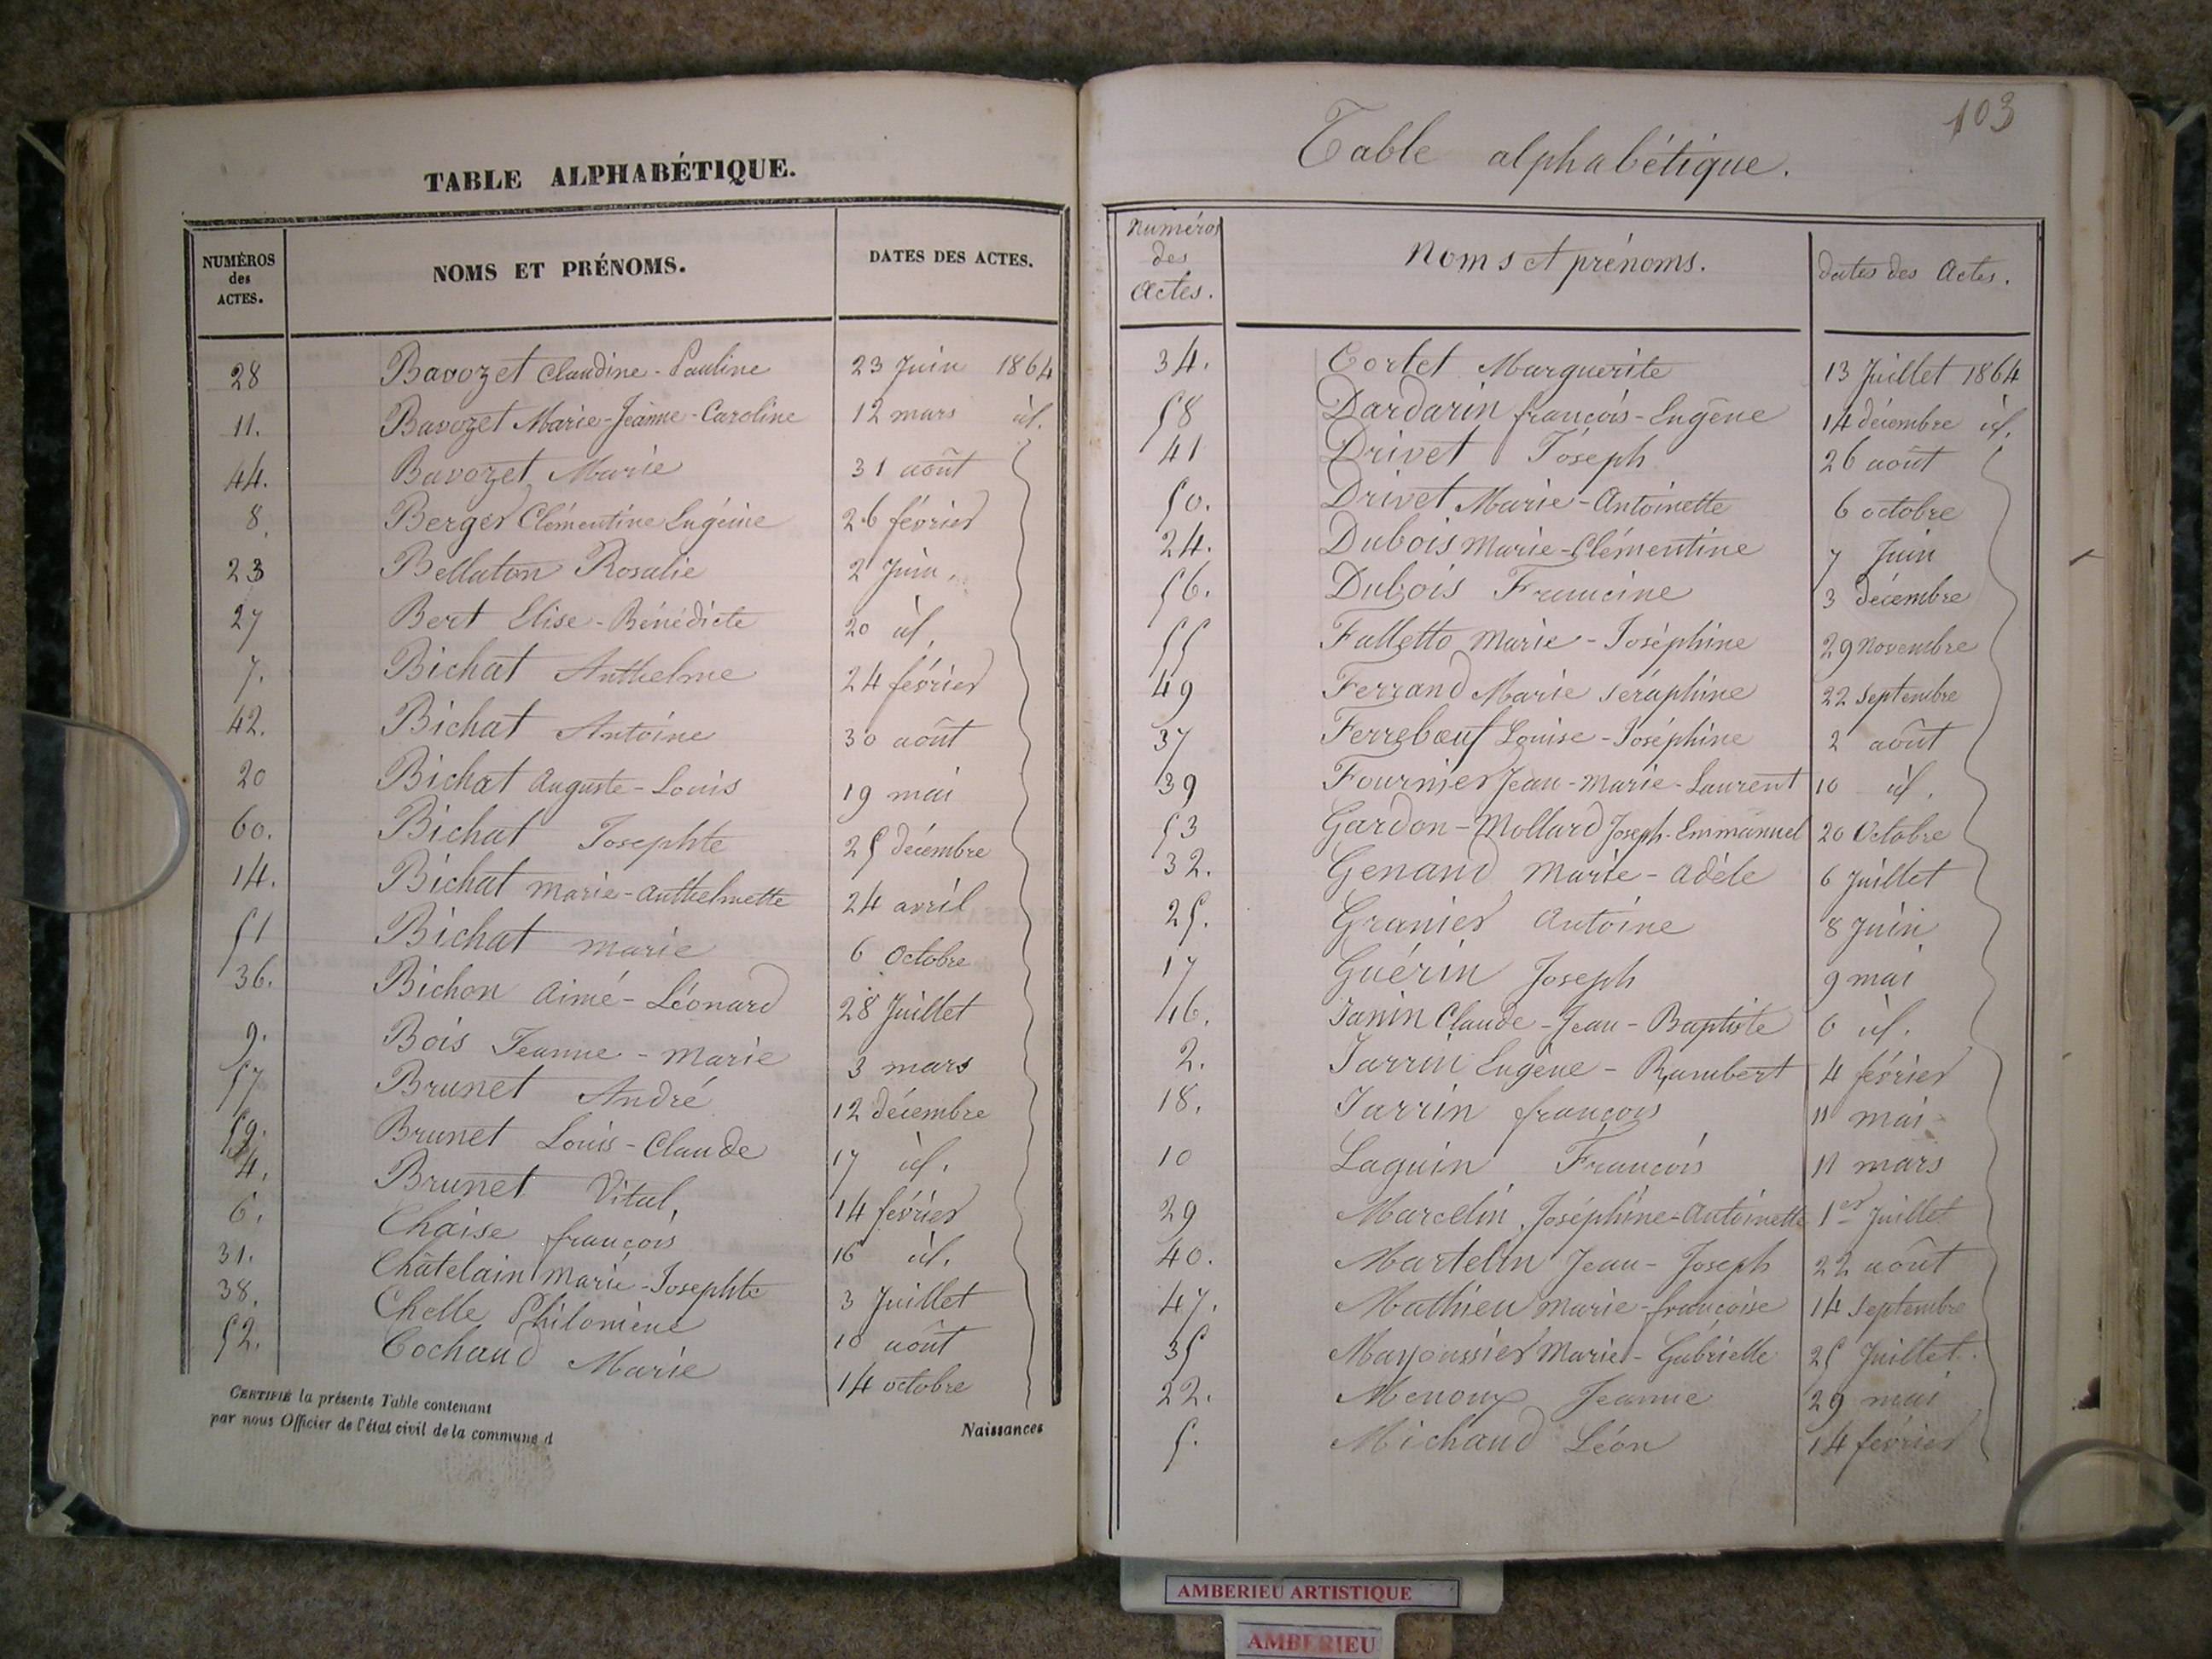 TABLE ALPHABÉTIQUE.
NUMÉROS des ACTES. NOMS ET PRÉNOMS. DATES DES ACTES.
28 Bavozet Claudine-Pauline 23 Juin 1864
11. Bavozet Marie-Jeanne-Caroline 12 mars id.
44. Bavozet Marie 31 août
8. Berger Clémentine Eugénie 26 février
23 Bellaton Rosalie 2 Juin
27 Bert Elise-Bénédicte 20 id.
7. Bichat Anthelme 24 février
42. Bichat Antoine 30 août
20 Bichat Auguste-Louis 19 mai
60. Bichat Josephte 25 décembre
14. Bichat marie-anthelmette 24 avril
51 Bichat marie 6 Octobre
36. Bichon Aimé-Léonard 28 Juillet
9. Bois Jeanne-Marie 3 mars
57 Brunet André 12 décembre
59. Brunet Louis-Claude 17 id.
4. Brunet Vital, 14 février
6. Chaise françois 16 id.
31. Châtelain Marie-Josephte 3 Juillet
38. Chelle Philomène 10 août
52. Cochaud Marie 14 octobre
CERTIFIÉ la présente Table contenant Naissances
par nous Officier de l'état civil de la commune d
103
Table alphabétique.
Numéros des Actes. Noms et prénoms. Dates des Actes.
34. Cortet Marguerite 13 Juillet 1864
58 Dardarin françois-Eugène 14 décembre id.
41 Drivet Joseph 26 août
50. Drivet Marie-Antoinette 6 octobre
24. Dubois Marie-Clémentine 7 Juin
56. Dubois Francine 3 décembre
55 Falletto Marie-Joséphine 29 Novembre
49 Ferrand Marie Séraphine 22 Septembre
37 Ferrebœuf Louise-Joséphine 2 août
39 Fournier Jean-Marie-Laurent 10 id.
53 Gardon-Mollard Joseph-Emmanuel 20 Octobre
32. Genand Marie-Adèle 6 Juillet
25. Granier Antoine 8 Juin
17 Guérin Joseph 9 mai
16. Janin Claude-Jean-Baptiste 6 id.
2. Jarrin Eugène-Rambert 4 février
18. Jarrin françois 11 mai
10 Laguin François 11 mars
29 Marcelin Joséphine-Antoinette 1er Juillet
40. Martelin Jean-Joseph 22 août
47. Mathieu Marie-françoise 14 Septembre
35 Mayoussier Marie-Gabrielle 25 Juillet.
22. Menoux Jeanne 29 mai
5. Michaud Léon 14 février
AMBERIEU ARTISTIQUE
AMBERIEU